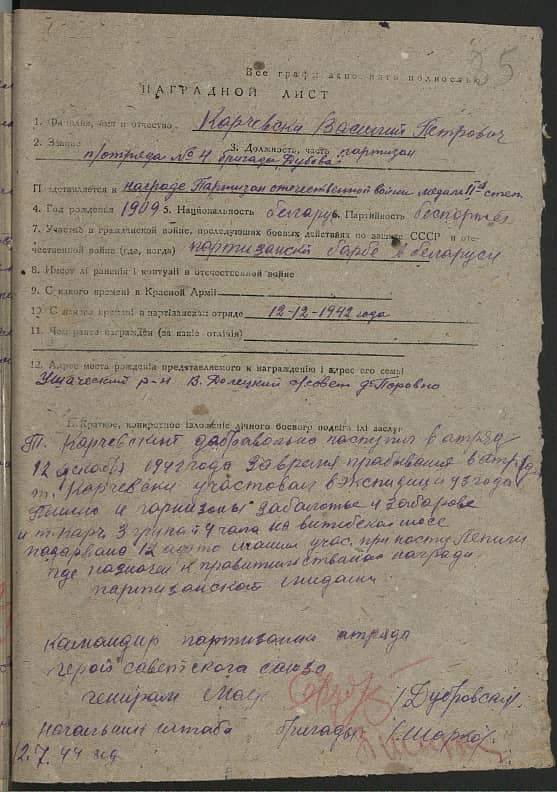 35
Все графы заполнять полностью
НАГРАДНОЙ ЛИСТ
1. Фамилия, имя и отчество Карчевски Василий Петрович
2. Звание 3. Должность, часть партизан
п/отряда № 4 бригада Дубова
Представляется к награде Партизан отечественной войны медали II степ
4. Год рождения 1909 5. Национальность беларус 6. Партийность беспортей
7. Участие в гражданской войне, последующих боевых действиях по защите СССР и оте-
чественной войне (где, когда) партизанской барбе в беларуси
8. Имеет лі раненія і контузіі в отечественной войне
9. С какого времені в Красной Арміі
10. С какого времені в партізанском отряде 12-12-1942 года
11. Чем ранее награжден (за какіе отлічія)
12. Адрес места рожденія представляемого к награжденію і адрес его семьі
Ушаческий р-н В. Долецкий с/совет д.
I. Краткое, конкретное ізложеніе лічного боевого подвіга ілі заслуг
Т. Карчевский дабравольно поступил в атряд
12 декабря 1942 года За время прабывания в атряде
т. Карчевски участовал в 43 года
и гарнизоны Заболотье и
и т. 3 на витебской шосе
падарвано 12 машин при
где к правитильствиной награди
партизанской мидали
Камандир партизански атряда
герой саветского союза
генирал маё /Дубровский/
начальник штаба бригады /Шарко/
2.7.44 год